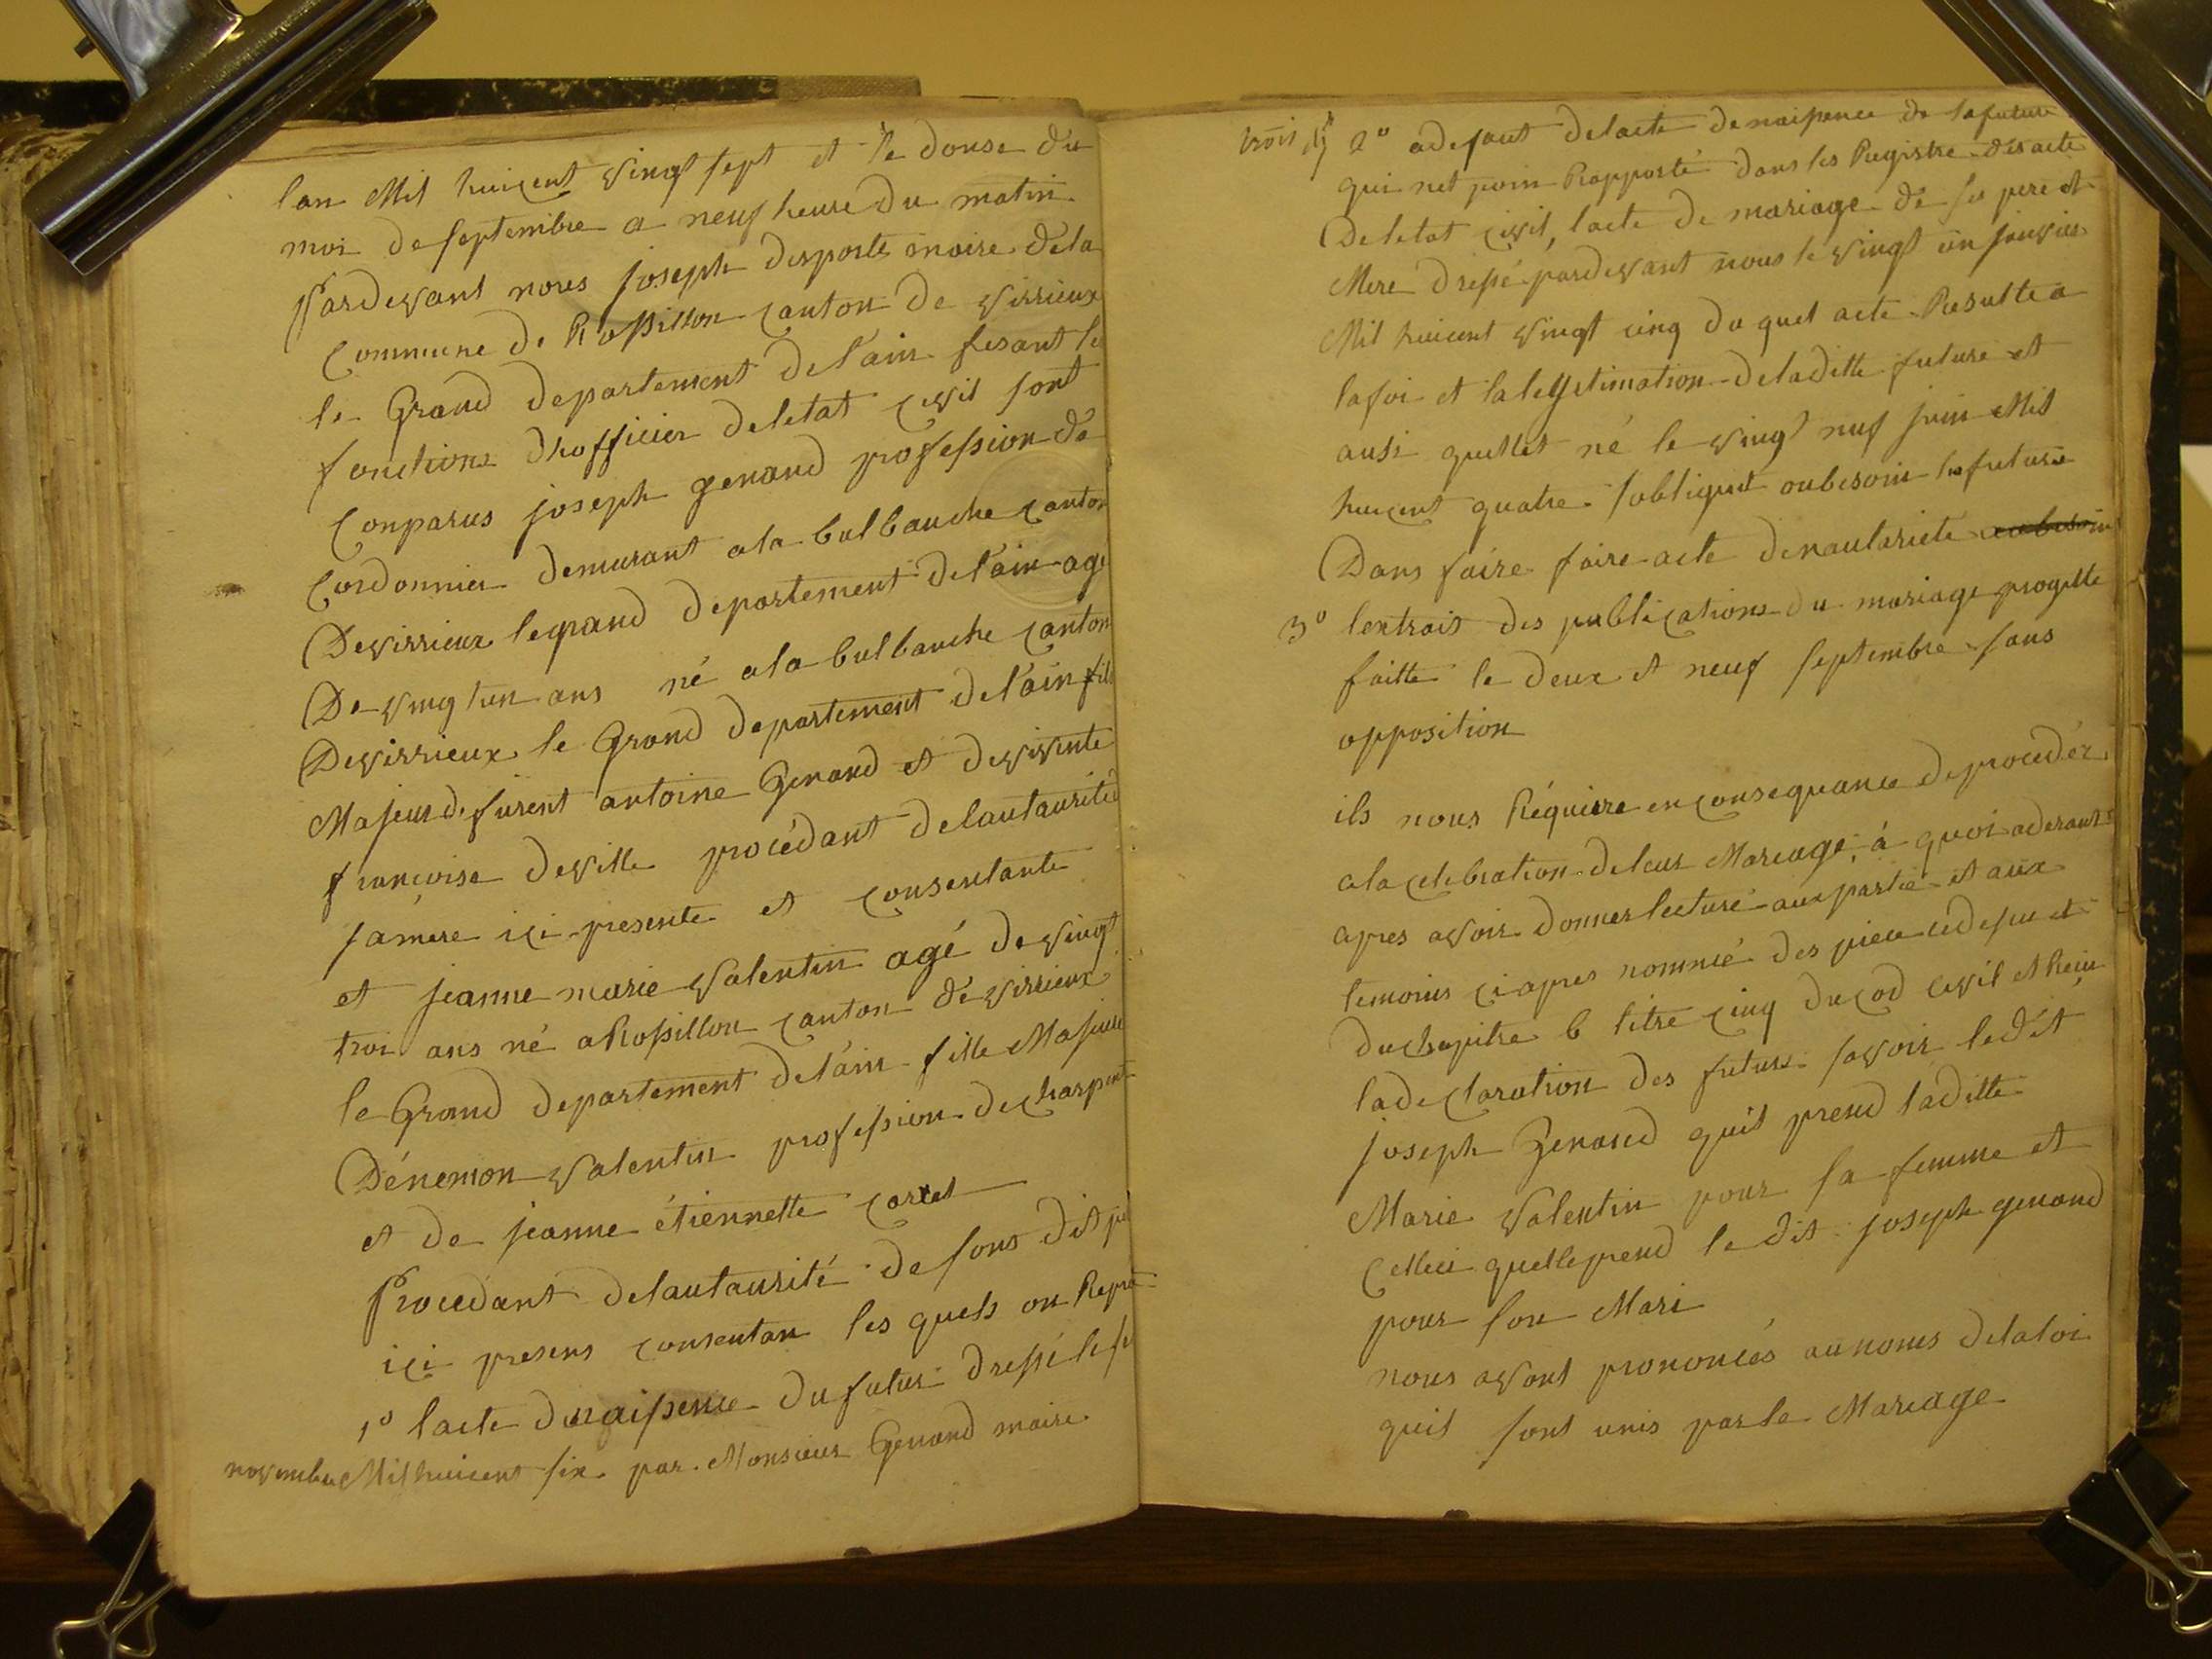 lan Mil huicent vingt sept et le douse du
moi de septembre a neuf heure du matin
Pardevant nous joseph desporte maire dela
Commune de Rossillon canton de virrieux
le Grand departement de l'ain fesant le
fonctions dhofficier deletat civil sont
Conparus joseph genand profession de
Cordonnier demurant ala bulbauche canton
Devirrieux legrand departement de l'ain age
De vingt un ans né ala bulbauche canton
Devirrieux le Grand departement de l'ain fils
Majeur defurent antoine Genand et devivente
françoise deville procédant delautaurité
samere ici presente et consentante
et jeanne marie Valentin agé de vingt
troi ans né a Rossillon canton de virrieux
le Grand departement de l'ain fille Majeure
Dénemon Valentin profession de charpent
et de jeanne étiennette cortet
Procedant delautaurité de sont dit pe
ici presens consentan les quels on Repre
1º lacte denaissence du futur dressé le
novembre Mil huicent six par Monsieur Genand maire
trois 2º adefaut delacte denaissence de lafuture
qui net poin Rapporté dans les Registre des acte
Deletat civil, lacte de mariage de se pere et
Mere dressé pardevant nous le vingt un janvier
Mil huicent vingt cinq du quel acte Resulte a
lafoi et lalegetimation deladitte future et
ausi quellet né le vingt neuf juin Mil
huicent quatre sobligent aubesoin les future
Dans faire faire acte denautariete aubesoin
3º lextrait des publications du mariage progette
faitte le deux et neuf septembre sans
opposition
ils nous Réquiere en consequance de procedér
ala celebration deleur Mareage, à quoi aderant
apres avoir donner lecture aux partie et aux
temoins ciapres nommé des piece cidessu et
du chapitre 6 titre cinq du cod civil et heiu
ladeclaration des future savoir ledit
joseph Genand quil prend laditte
Marie Valentin pour sa femme et
Celleci quelleprend le dit joseph genand
pour son Mari
nous avont prononcés au noms delaloi
quil sont unis par le Mareage